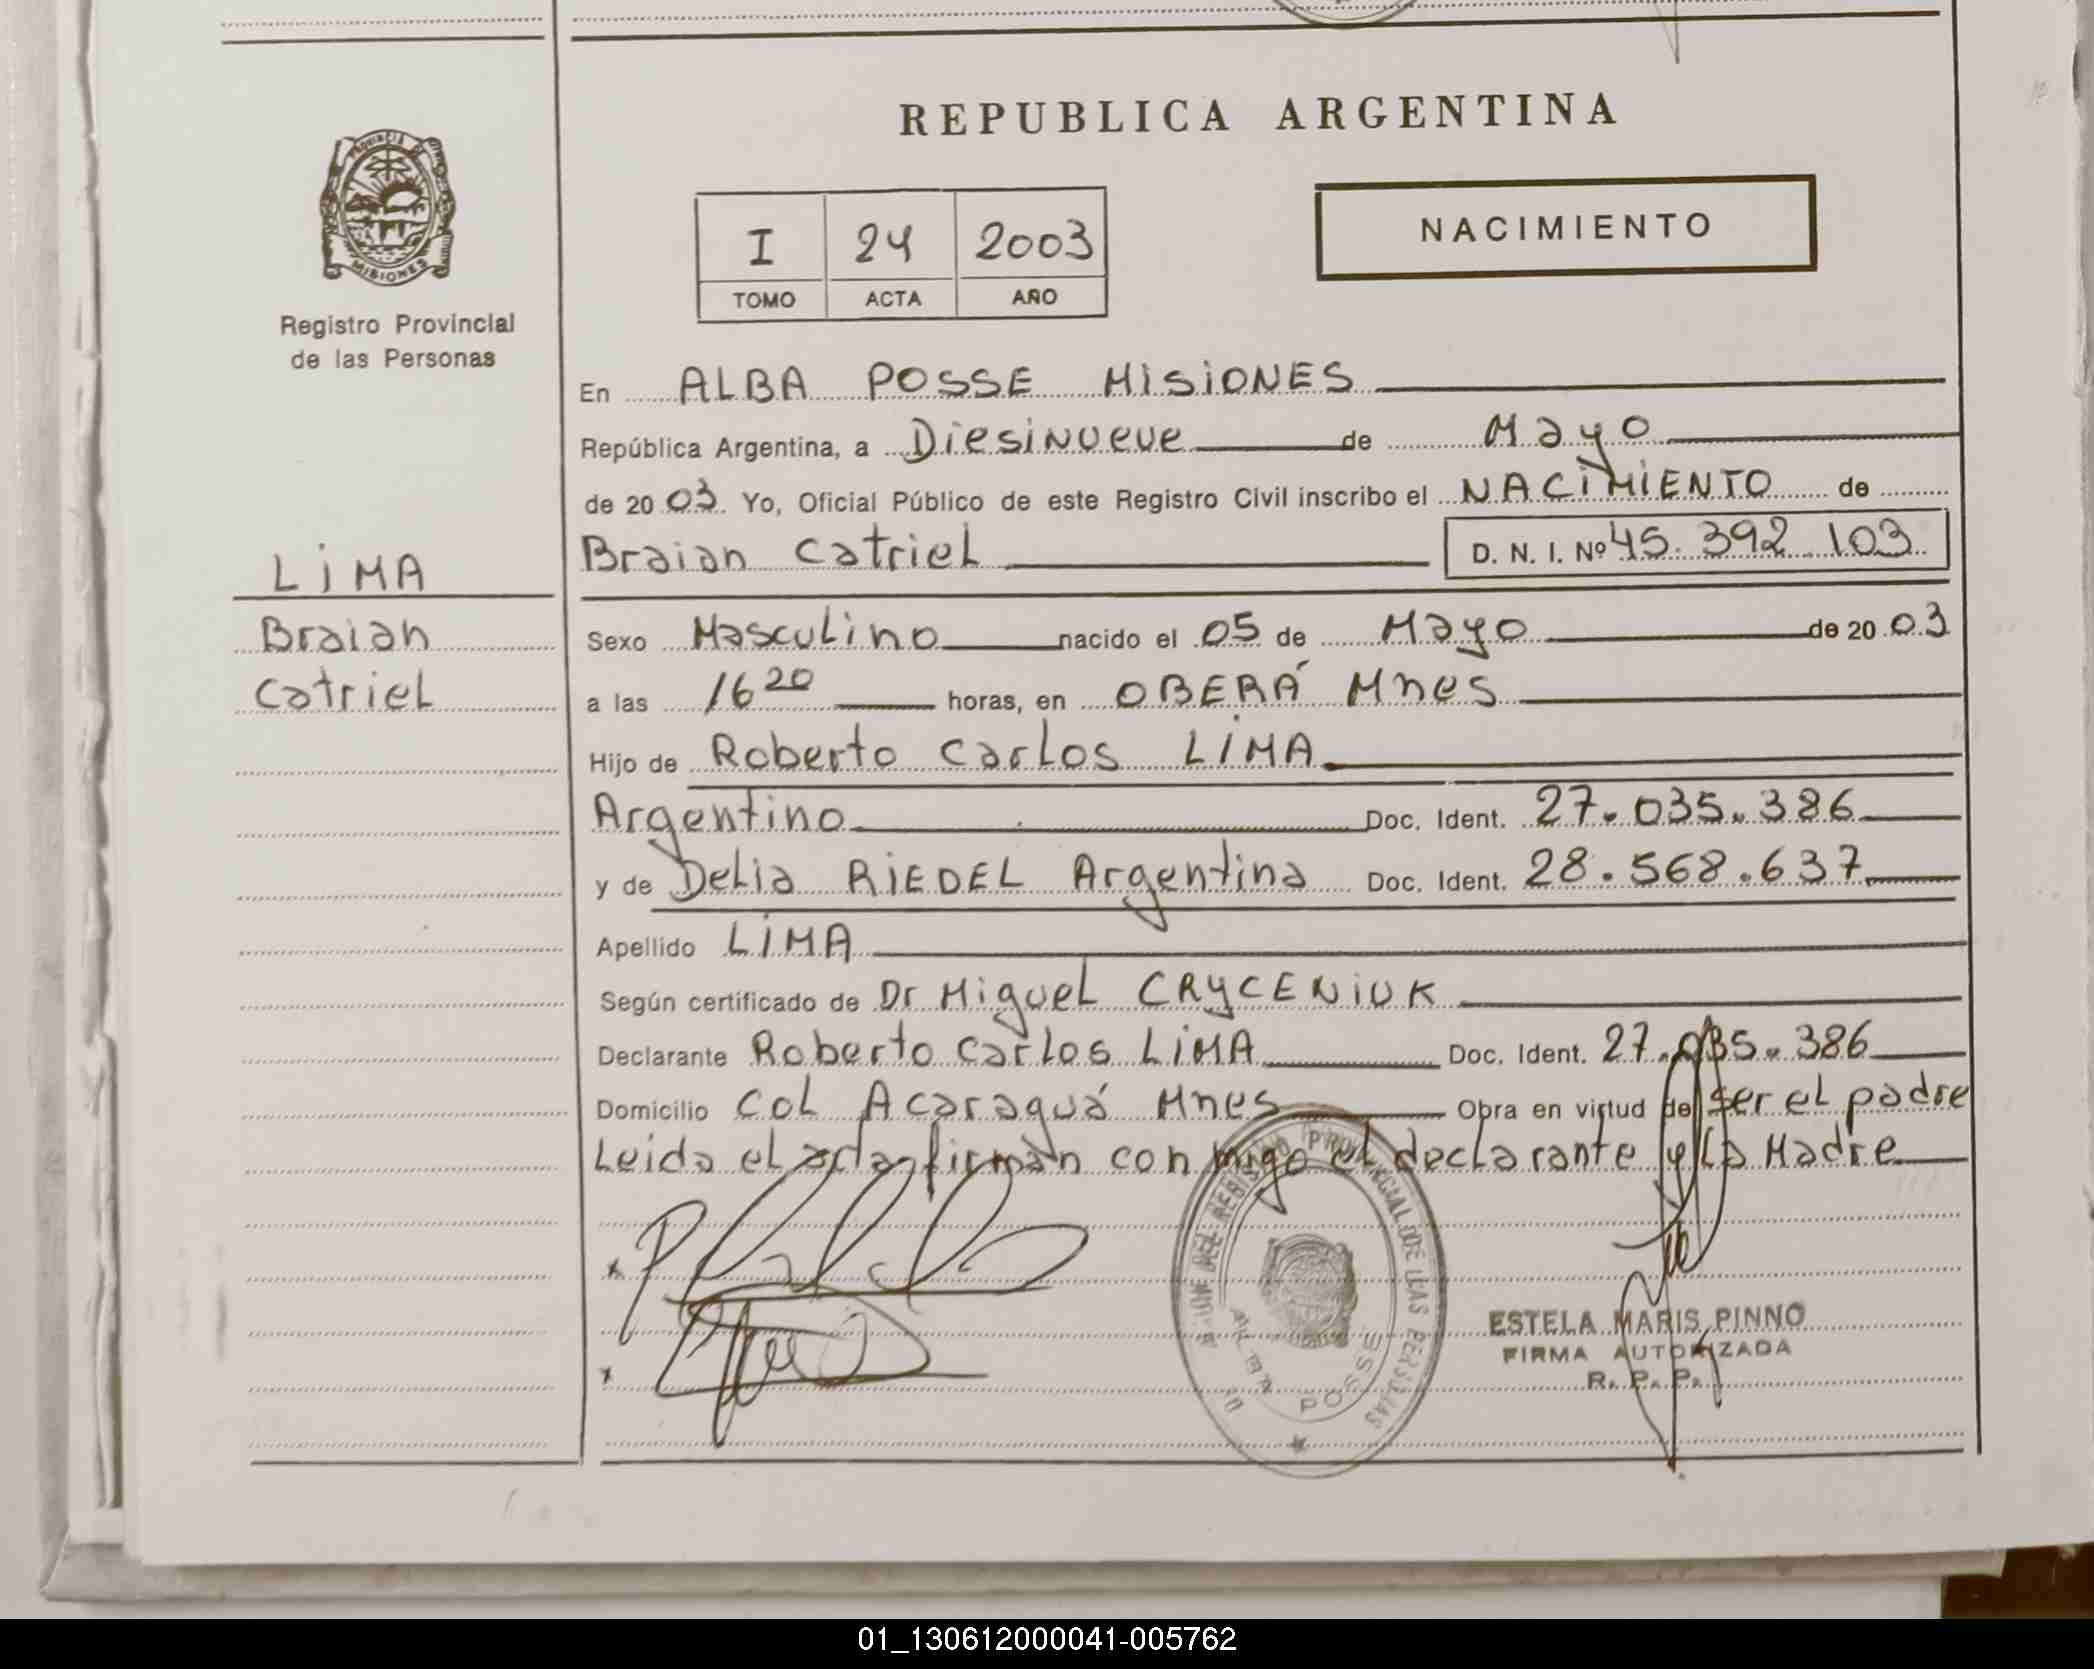 REPUBLICA ARGENTINA
PROVINCIA DE
MISIONES
Registro Provincial
de las Personas
I 24 2003
TOMO ACTA AÑO
NACIMIENTO
En ALBA POSSE MISIONES
República Argentina, a Diesinueve de Mayo
de 2003 Yo, Oficial Público de este Registro Civil inscribo el NACIMIENTO de
Braian Catriel D. N. I. Nº 45.392.103
LIMA
Braian
Catriel
Sexo Masculino nacido el 05 de Mayo de 2003
a las 16 20 horas, en OBERÁ Mnes
Hijo de Roberto Carlos LIMA
Argentino Doc. Ident. 27.035.386
y de Delia RIEDEL Argentina Doc. Ident. 28.568.637
Apellido LIMA
Según certificado de Dr Miguel CRYCENIUK
Declarante Roberto Carlos LIMA Doc. Ident. 27.035.386
Domicilio Col Acaraguá Mnes Obra en virtud de ser el padre
Leida el acta firman con migo el declarante y la Madre
DEL REGISTRO PROVINCIAL DE LAS PERSONAS
ALBA POSSE
ESTELA MARIS PINNO
FIRMA AUTORIZADA
R. P. P.
01_130612000041-005762